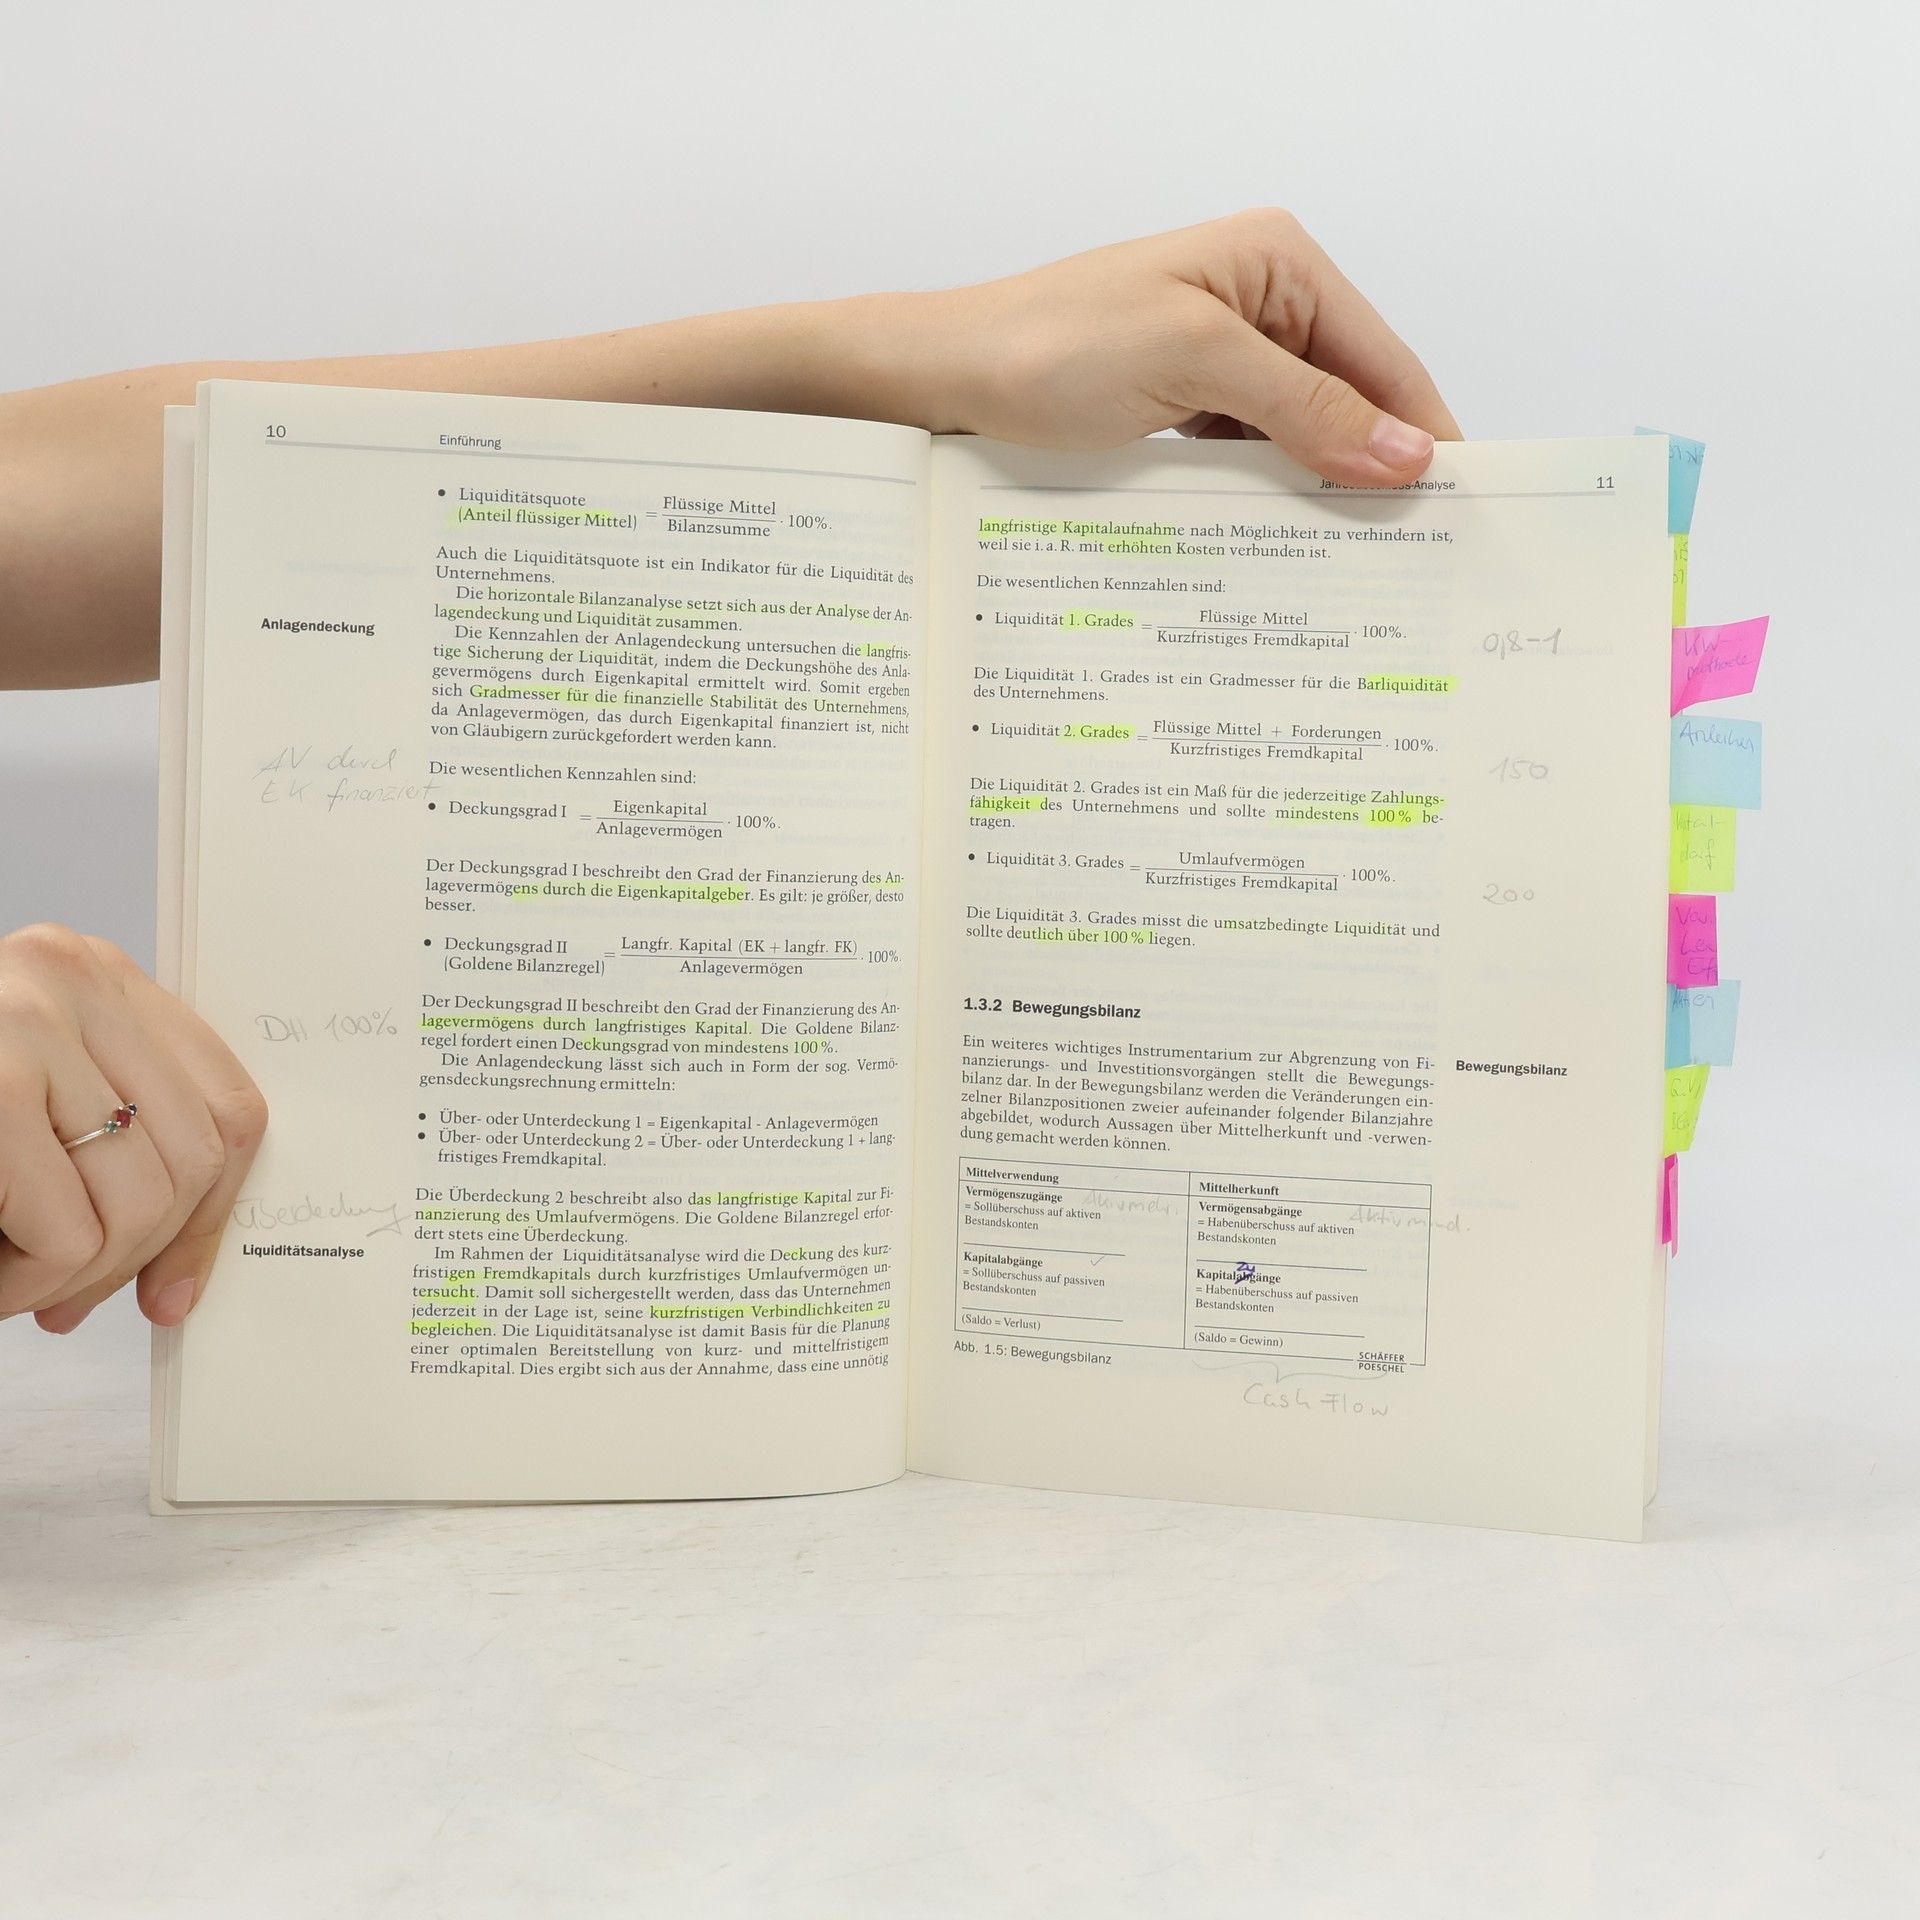 10
Einführung
• Liquiditätsquote
(Anteil flüssiger Mittel) = Flüssige Mittel / Bilanzsumme · 100%.
Auch die Liquiditätsquote ist ein Indikator für die Liquidität des
Unternehmens.
Die horizontale Bilanzanalyse setzt sich aus der Analyse der An-
lagendeckung und Liquidität zusammen.
Anlagendeckung
Die Kennzahlen der Anlagendeckung untersuchen die langfris-
tige Sicherung der Liquidität, indem die Deckungshöhe des Anla-
gevermögens durch Eigenkapital ermittelt wird. Somit ergeben
sich Gradmesser für die finanzielle Stabilität des Unternehmens,
da Anlagevermögen, das durch Eigenkapital finanziert ist, nicht
von Gläubigern zurückgefordert werden kann.
AV durch
EK finanziert
Die wesentlichen Kennzahlen sind:
• Deckungsgrad I = Eigenkapital / Anlagevermögen · 100%.
Der Deckungsgrad I beschreibt den Grad der Finanzierung des An-
lagevermögens durch die Eigenkapitalgeber. Es gilt: je größer, desto
besser.
• Deckungsgrad II
(Goldene Bilanzregel) = Langfr. Kapital (EK + langfr. FK) / Anlagevermögen · 100%.
Der Deckungsgrad II beschreibt den Grad der Finanzierung des An-
lagevermögens durch langfristiges Kapital. Die Goldene Bilanz-
regel fordert einen Deckungsgrad von mindestens 100 %.
100%
Die Anlagendeckung lässt sich auch in Form der sog. Vermö-
gensdeckungsrechnung ermitteln:
• Über- oder Unterdeckung 1 = Eigenkapital - Anlagevermögen
• Über- oder Unterdeckung 2 = Über- oder Unterdeckung 1 + lang-
fristiges Fremdkapital.
Die Überdeckung 2 beschreibt also das langfristige Kapital zur Fi-
nanzierung des Umlaufvermögens. Die Goldene Bilanzregel erfor-
dert stets eine Überdeckung.
Überdeckung
Liquiditätsanalyse
Im Rahmen der Liquiditätsanalyse wird die Deckung des kurz-
fristigen Fremdkapitals durch kurzfristiges Umlaufvermögen un-
tersucht. Damit soll sichergestellt werden, dass das Unternehmen
jederzeit in der Lage ist, seine kurzfristigen Verbindlichkeiten zu
begleichen. Die Liquiditätsanalyse ist damit Basis für die Planung
einer optimalen Bereitstellung von kurz- und mittelfristigem
Fremdkapital. Dies ergibt sich aus der Annahme, dass eine unnötig
-Analyse
11
langfristige Kapitalaufnahme nach Möglichkeit zu verhindern ist,
weil sie i. a. R. mit erhöhten Kosten verbunden ist.
Die wesentlichen Kennzahlen sind:
• Liquidität 1. Grades = Flüssige Mittel / Kurzfristiges Fremdkapital · 100%.
0,8-1
Die Liquidität 1. Grades ist ein Gradmesser für die Barliquidität
des Unternehmens.
• Liquidität 2. Grades = Flüssige Mittel + Forderungen / Kurzfristiges Fremdkapital · 100%.
150
Die Liquidität 2. Grades ist ein Maß für die jederzeitige Zahlungs-
fähigkeit des Unternehmens und sollte mindestens 100 % be-
tragen.
• Liquidität 3. Grades = Umlaufvermögen / Kurzfristiges Fremdkapital · 100%.
200
Die Liquidität 3. Grades misst die umsatzbedingte Liquidität und
sollte deutlich über 100 % liegen.
1.3.2 Bewegungsbilanz
Ein weiteres wichtiges Instrumentarium zur Abgrenzung von Fi-
nanzierungs- und Investitionsvorgängen stellt die Bewegungs-
bilanz dar. In der Bewegungsbilanz werden die Veränderungen ein-
zelner Bilanzpositionen zweier aufeinander folgender Bilanzjahre
abgebildet, wodurch Aussagen über Mittelherkunft und -verwen-
dung gemacht werden können.
Bewegungsbilanz
Mittelverwendung
Vermögenszugänge
Aktivmehr.
= Sollüberschuss auf aktiven
Bestandskonten
Kapitalabgänge
= Sollüberschuss auf passiven
Bestandskonten
(Saldo = Verlust)
Mittelherkunft
Vermögensabgänge
Aktivmind.
= Habenüberschuss auf aktiven
Bestandskonten
zu
Kapitalabgänge
= Habenüberschuss auf passiven
Bestandskonten
(Saldo = Gewinn)
SCHÄFFER
POESCHEL
Abb. 1.5: Bewegungsbilanz
Cash Flow
KW-
methode
Anleihen